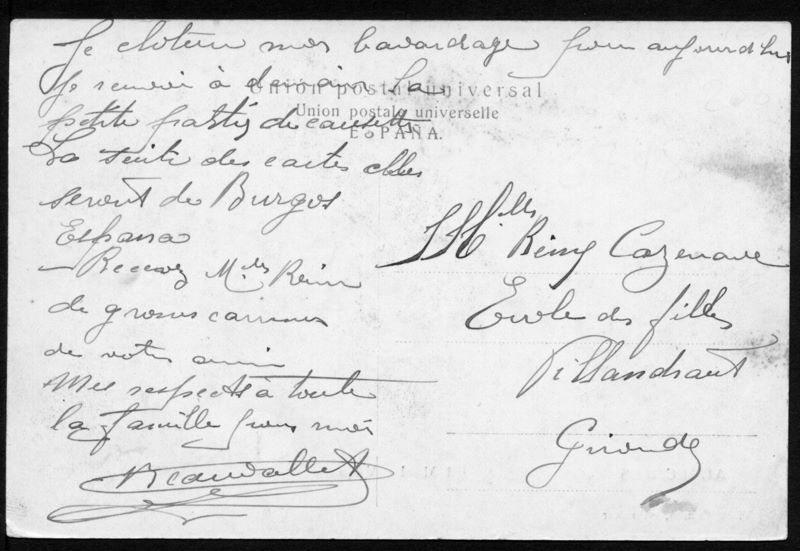 Je cloture mon bavardage pour aujourd'hui
Je renvoi à demain la
petite partie de causette
La suite des cartes elles
seront de Burgos
Espana
— Recevez M.lles Rémy
de grosses
de votre amie
Mes respects à toute
la famille pour moi
Unión postal universal
Union postale universelle
ESPAÑA.
M.lles Rémy Cazenave
Ecole des filles
Villandraut
Gironde